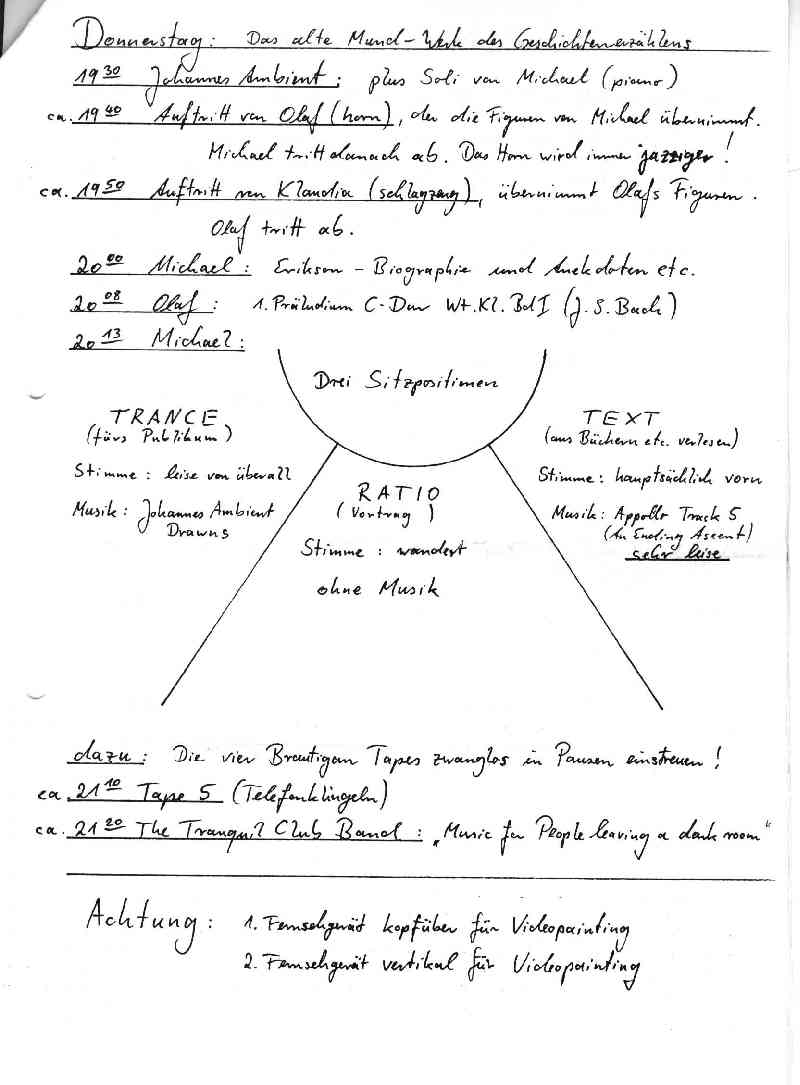 Donnerstag: Das alte Mund-Werk des Geschichtenerzählens
19 30 Johannes Ambient; plus Soli von Michael (piano)
ca. 19 40 Auftritt von Olaf (horn), der die Figuren von Michael übernimmt.
Michael tritt danach ab. Das Horn wird immer jazziger!
ca. 19 50 Auftritt von Klaudia (schlagzeug), übernimmt Olafs Figuren.
Olaf tritt ab.
20 00 Michael: Erikson - Biographie und Anekdoten etc.
20 08 Olaf: 1. Präludium C-Dur Wt. Kl. Bd I (J. S. Bach)
20 13 Michael:
Drei Sitzpositionen
TRANCE
(fürs Publikum)
Stimme: leise von überall
Musik: Johannes Ambient
Drawns
RATIO
(Vortrag)
Stimme: wandert
ohne Musik
TEXT
(aus Büchern etc. verlesen)
Stimme: hauptsächlich vorn
Musik: Appollo Track 5
(An Ending Ascent)
sehr leise
dazu: Die vier Breutigan Tapes zwanglos in Pausen einstreuen!
ca. 21 10 Tape 5 (Telefonklingeln)
ca. 21 20 The Tranquil Club Band: „Music for People leaving a dark room“
Achtung: 1. Fernsehgerät kopfüber für Videopainting
2. Fernsehgerät vertikal für Videopainting